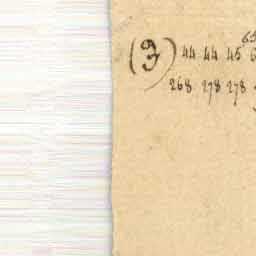 (3) 44 44 45
268 278 278